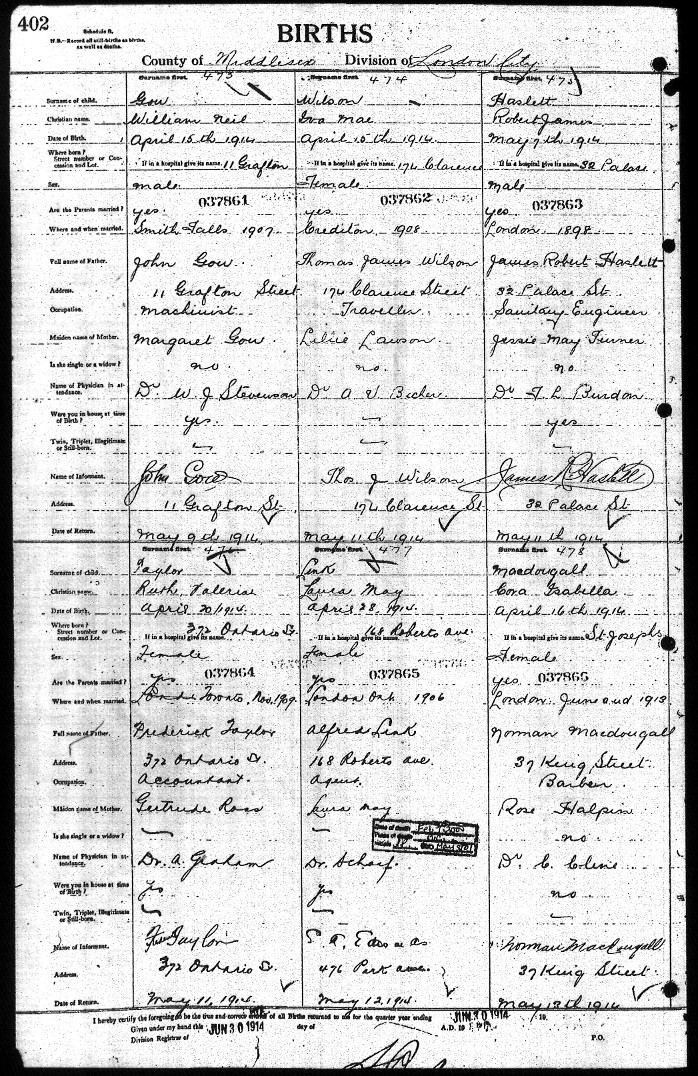 402
Schedule A.
N.B.—Record all still-births as births, as well as deaths.
BIRTHS
County of Middlesex Division of London City
Surname first. 473 Surname first. 474 Surname first. 475
Surname of child. Gow Wilson Haslett
Christian name. William Neil Iva Mae Robert James
Date of Birth. April 15th 1914 April 15th 1914 May 7th 1914
Where born? Street number or Concession and Lot. If in a hospital give its name. 11 Grafton If in a hospital give its name. 174 Clarence If in a hospital give its name. 32 Palace
Sex. male Female male
037861 037862 037863
Are the Parents married? yes. yes yes
Where and when married. Smith Falls 1907 Crediton 1908 London 1898
Full name of Father. John Gow Thomas James Wilson James Robert Haslett
Address. 11 Grafton Street 174 Clarence Street 32 Palace St
Occupation. Machinist Traveller Sanitary Engineer
Maiden name of Mother. Margaret Gow Lillie Lawson Jessie May Turner
Is she single or a widow? no no. no
Name of Physician in attendance. Dr W. J Stevenson Dr A V Becher Dr F L Burdon
Were you in house at time of Birth? yes. — yes
Twin, Triplet, Illegitimate or Still-born. — — —
Name of Informant. John Gow Thos J Wilson James R Haslett
Address. 11 Grafton St. 174 Clarence St 32 Palace St
Date of Return. May 9th 1914 May 11th 1914 May 11th 1914
Surname first. 476 Surname first. 477 Surname first. 478
Surname of child. Taylor Link Macdougall
Christian name. Ruth Valeria Laura May Cora Isabella
Date of Birth. April 20/1914. April 28, 1914. April 16th 1914
Where born? Street number or Concession and Lot. If in a hospital give its name. 372 Ontario St. If in a hospital give its name. 168 Roberts ave. If in a hospital give its name. St. Josephs
Sex. Female Female Female
037864 037865 037866
Are the Parents married? yes yes yes
Where and when married. Toronto, Nov. 1909. London Ont 1906 London June 2nd 1913
Full name of Father. Frederick Taylor Alfred Link Norman Macdougall
Address. 372 Ontario St. 168 Roberts ave. 37 King Street
Occupation. Accountant. Agent. Barber
Maiden name of Mother. Gertrude Ross Laura May Rose Halpin
Is she single or a widow? — — no
Date of death
Place of death
Name of Physician in attendance. Dr. A. Graham Dr. Scharf. Dr C. Cline
Were you in house at time of Birth? yes yes no
Twin, Triplet, Illegitimate or Still-born. — — —
Name of Informant. Fred Taylor Norman MacDougall
Address. 372 Ontario St. 476 Park ave. 37 King Street
Date of Return. May 11, 1914. May 12, 1914. May 13th 1914
I hereby certify the foregoing to be the true and correct of all Births returned to me for the quarter year ending JUN 30 1914 19
Given under my hand this JUN 30 1914 day of A.D. 19
Division Registrar of P.O.